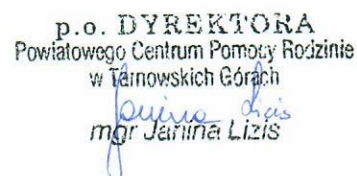 p.o. DYREKTORA
Powiatowego Centrum Pomocy Rodzinie
w Tarnowskich Górach
Janina Lizis
mgr Janina Lizis